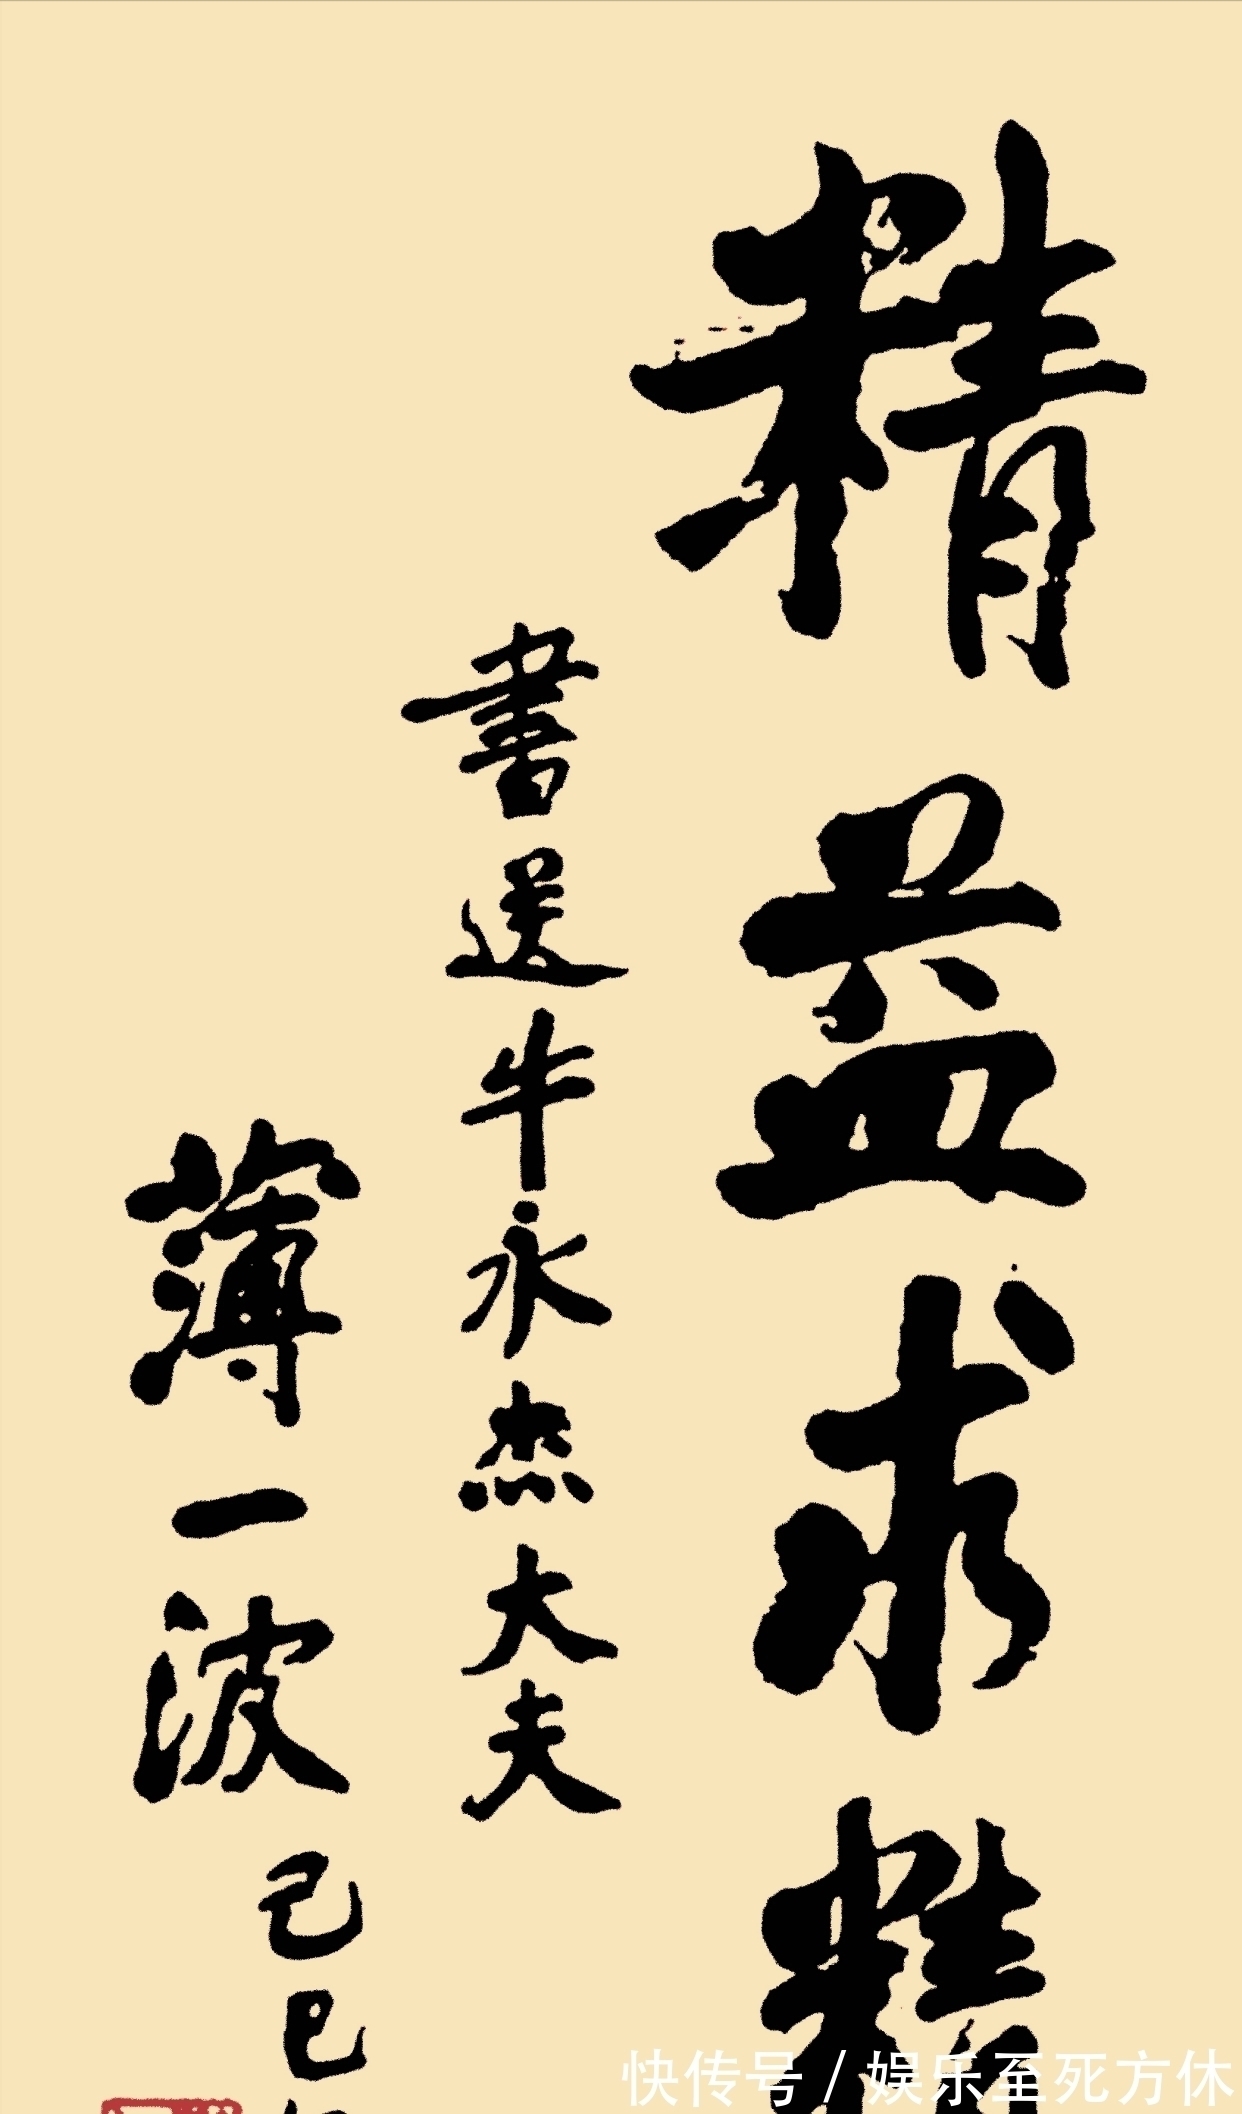 精益求精
書送牛永杰大夫
薄一波
己巳
快传号/娱乐至死方休